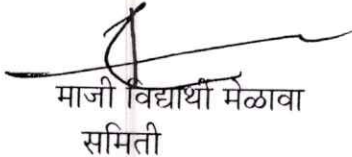 माजी विद्यार्थी मेळावा
समिती